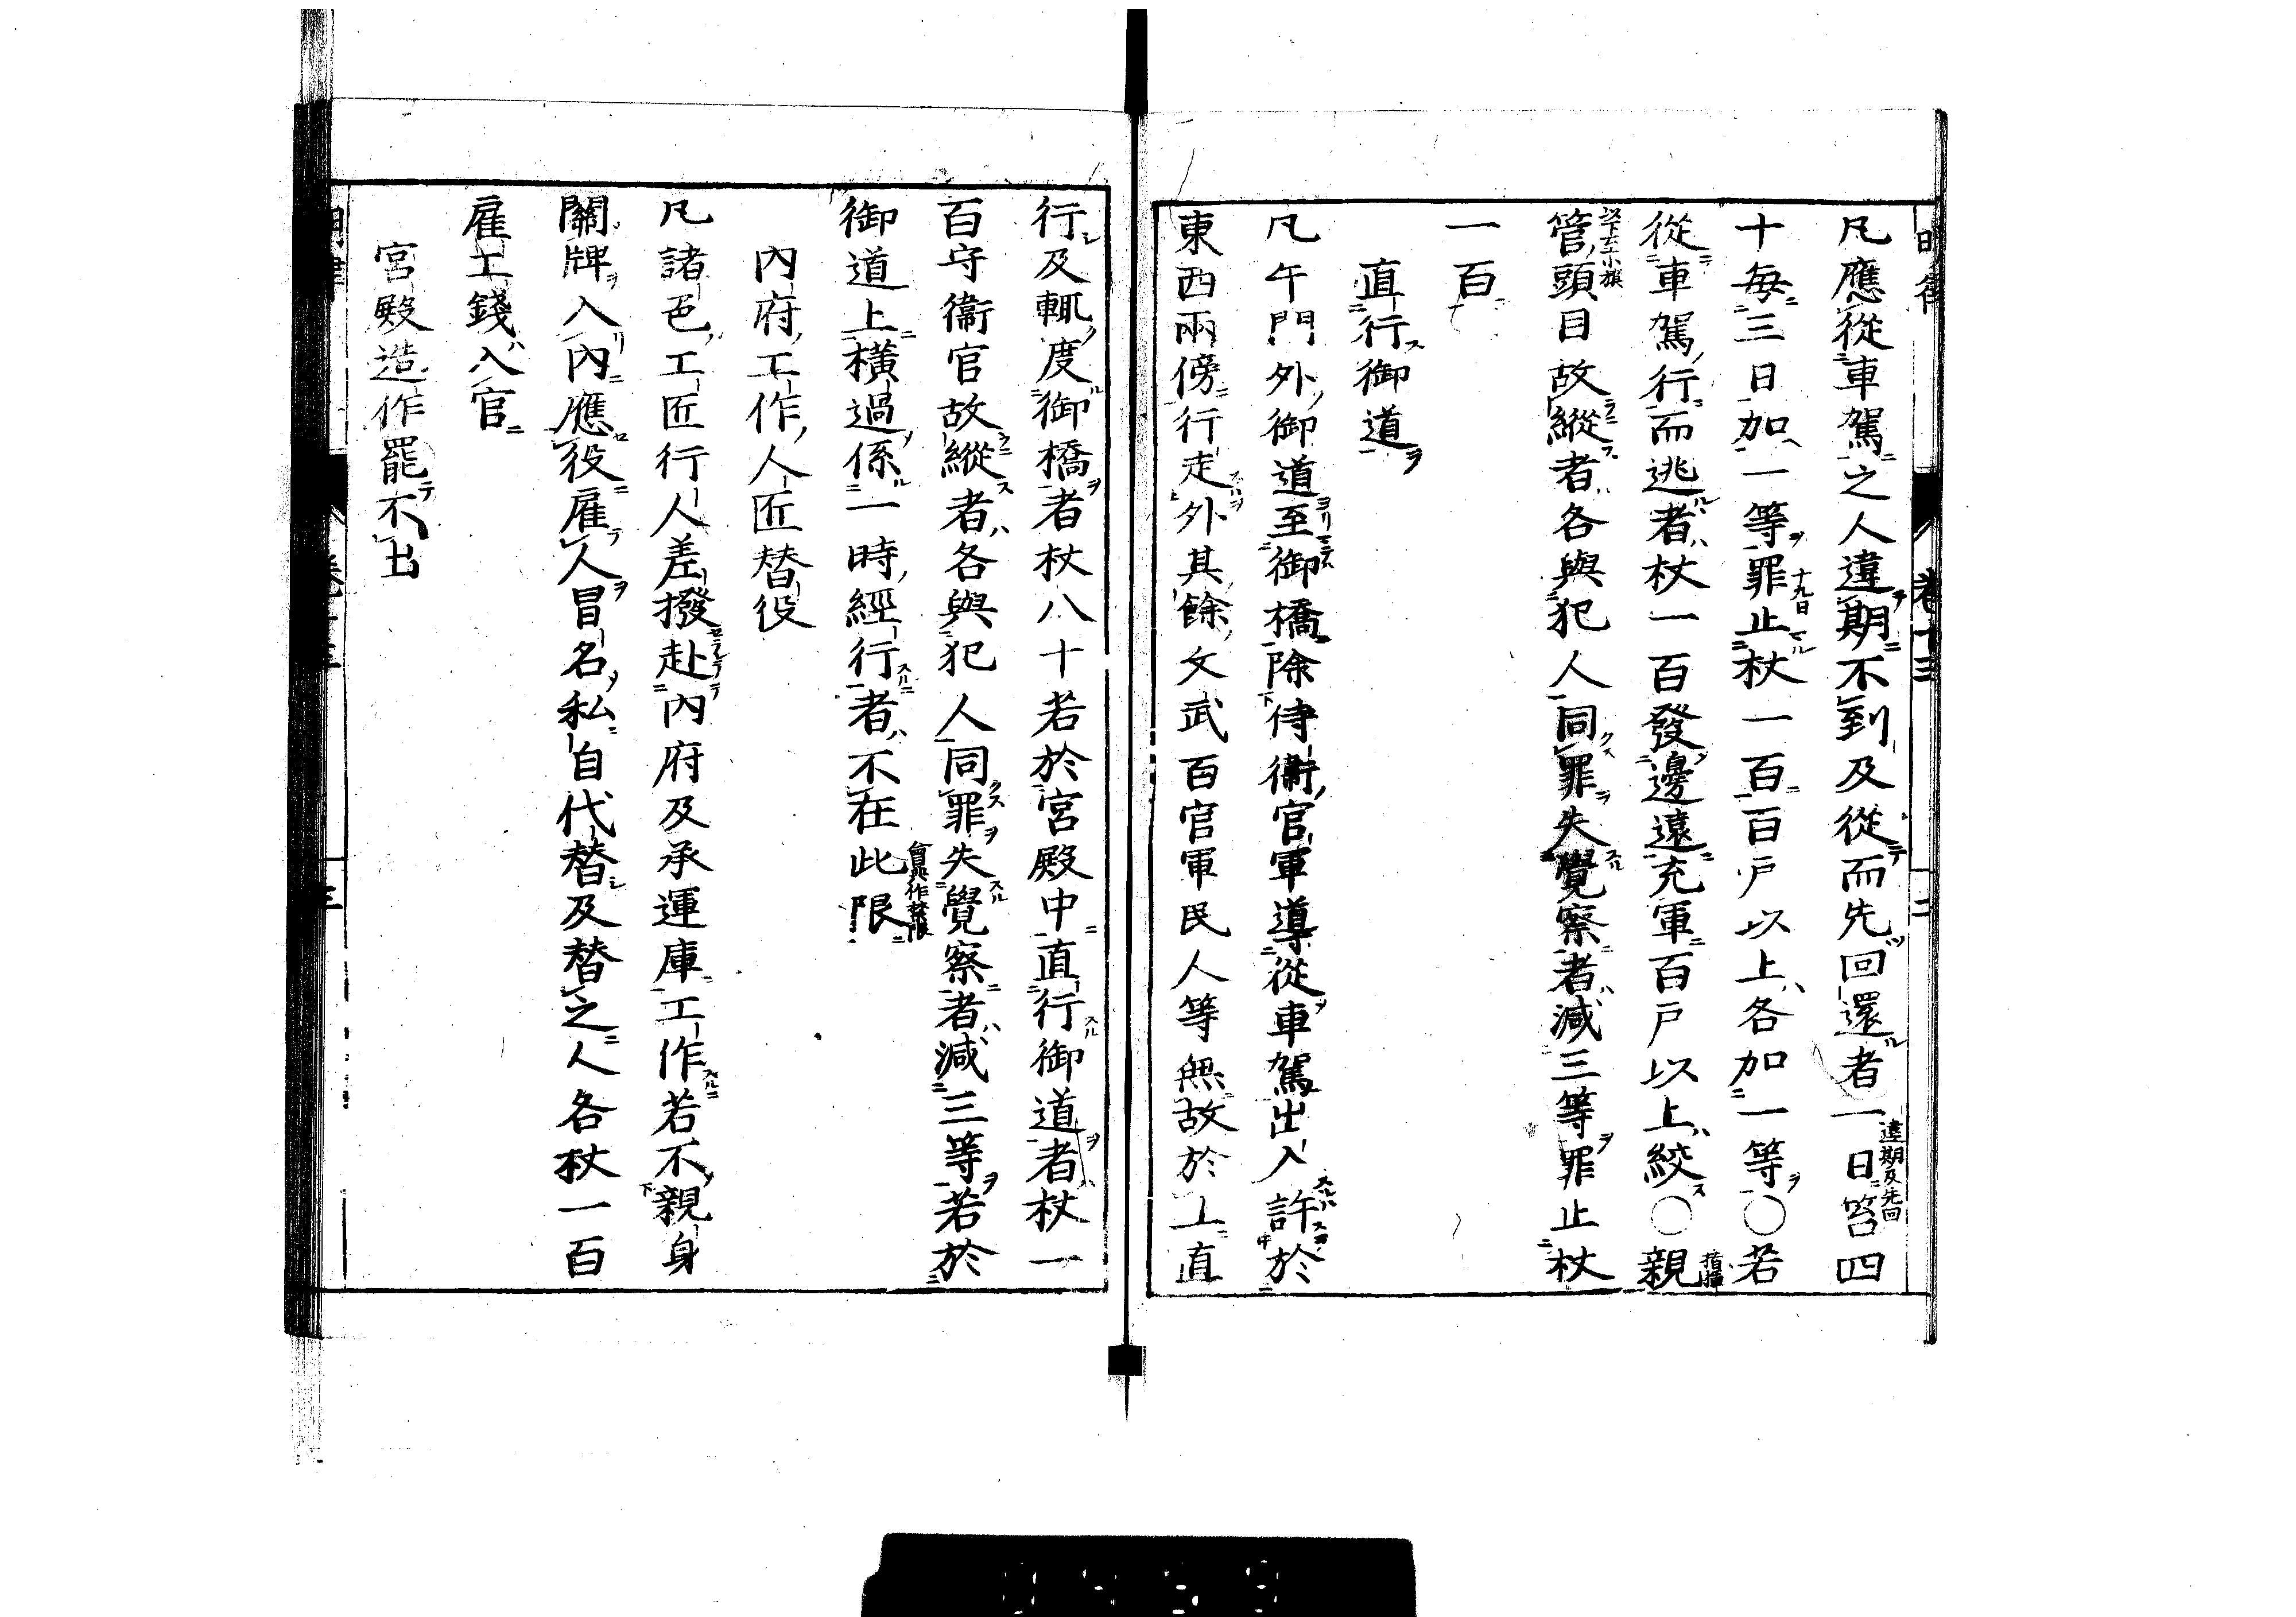 凡應從車駕之人違期不到及從而先回還者一日笞四
違期及先回
十每三日加一等罪止杖一百百戶以上各加一等○若
十九日
從車駕行而逃者杖一百發邊遠充軍百戶以上絞○親
指揮
管頭目故縱者各與犯人同罪失覺察者減三等罪止杖
以下至小旗
一百
直行御道
凡午門外御道至御橋除侍衞官軍導從車駕出入許於
東西兩傍行走外其餘文武百官軍民人等無故於上直
行及輒度御橋者杖八十若於宮殿中直行御道者杖一
百守衞官故縱者各與犯人同罪失覺察者減三等若於
御道上橫過係一時經行者不在此限
內府工作人匠替役
凡諸色工匠行人差撥赴內府及承運庫工作若不親身
關牌入內應役雇人冒名私自代替及替之人各杖一百
雇工錢入官
宮殿造作罷不出